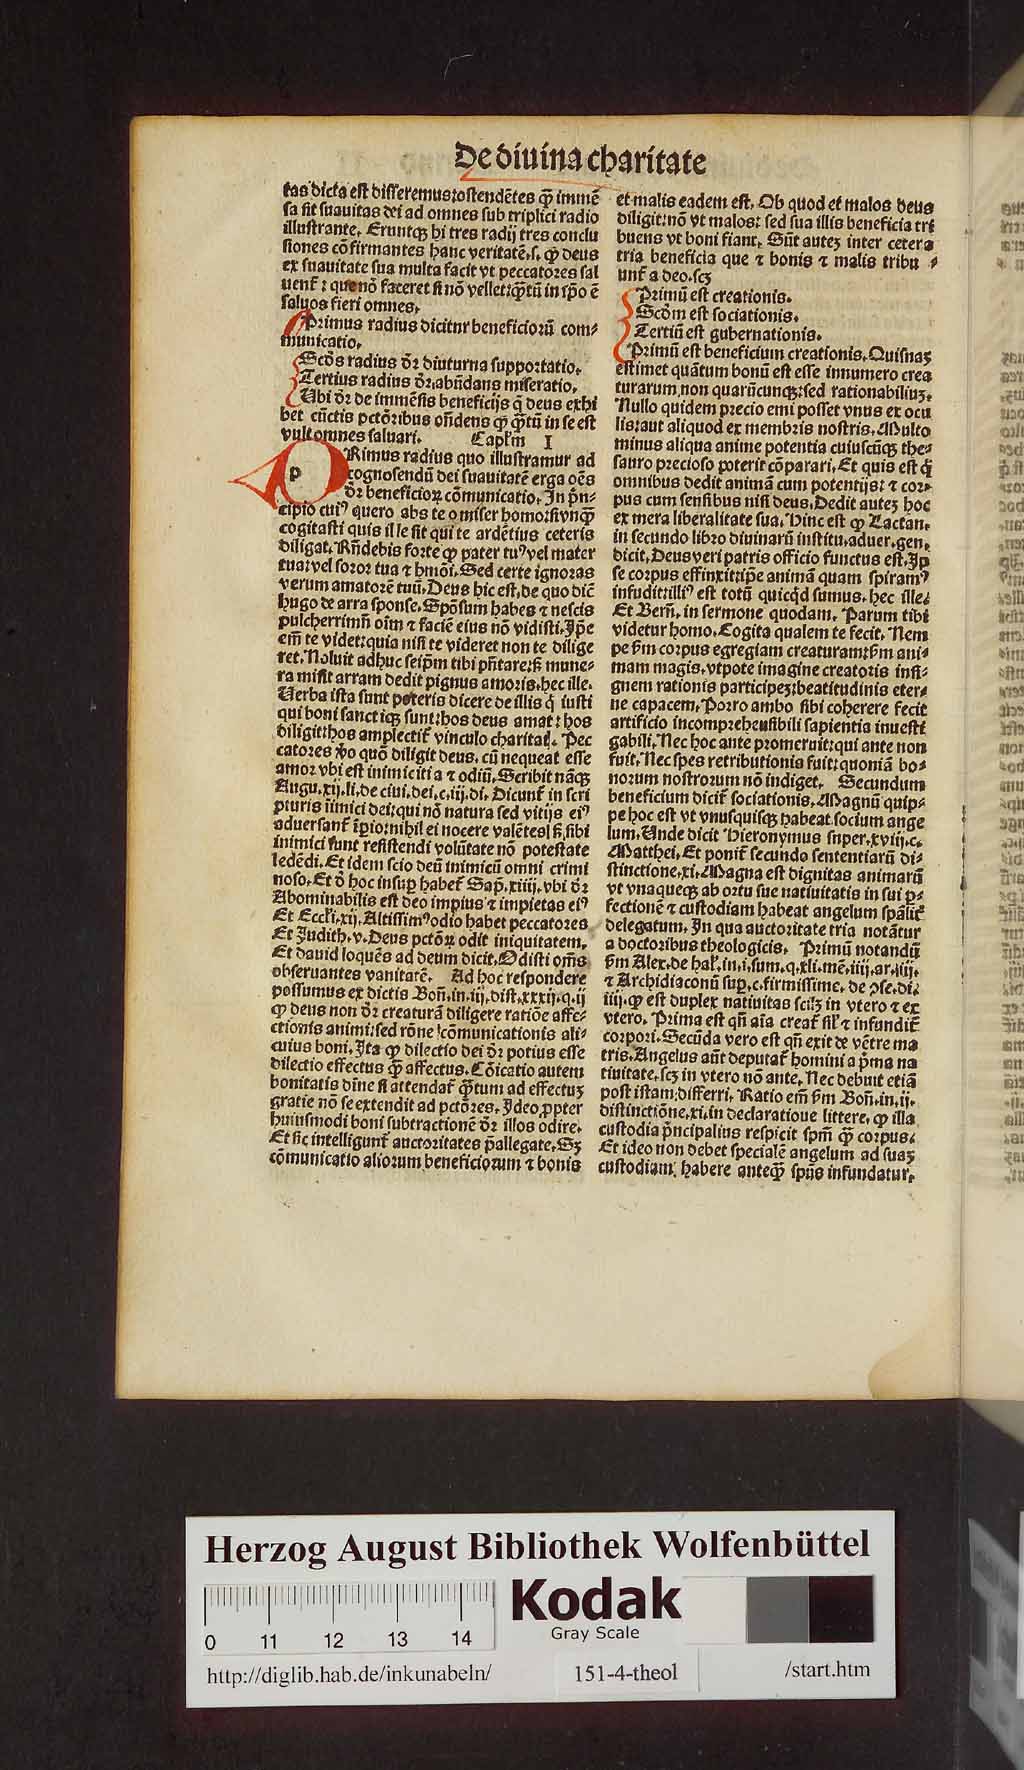 De diuina charitate
tas dicta est differemus: ostendētes ꝙ immē
sa sit suauitas dei ad omnes sub triplici radio
illustrante. Eruntqꝫ hi tres radij tres conclu
siones cōfirmantes hanc veritatē.s. ꝙ deus
ex suauitate sua multa facit vt peccatores sal
uent̄: que nō faceret si nō vellet: qꝫtū in ip̄o ē
saluos fieri omnes.
Primus radius dicitnr beneficiorū com⸗
municatio.
Scd̄s radius dr̄ diuturna supportatio.
Tertius radius dr̄.abūdans miseratio.
Ubi dr̄ de immēsis beneficijs q̄ deus exhi
bet cūctis pctōribus on̄dens ꝙ qꝫtū in se est
vult omnes saluari. Caplm̄ I
p Rimus radius quo illustramur ad
cognosendū dei suauitatē erga oēs
dr̄ beneficioꝝ cōmunicatio. In pn̄⸗
cipio cuiꝰ quero abs te o miser homo: si vnqꝫ
cogitasti quis ille sit qui te ardētius ceteris
diligat. Rn̄debis forte ꝙ pater tuꝰ vel mater
tua: vel soror tua ⁊ hmōi. Sed certe ignoras
verum amatorē tuū. Deus hic est. de quo dic̄
hugo de arra sponse. Spōsum habes ⁊ nescis
pulcherrimū oim̄ ⁊ faciē eius nō vidisti. Ip̄e
em̄ te videt: quia nisi te videret non te dilige
ret. Noluit adhuc seip̄m tibi pn̄tare: sꝫ mune⸗
ra misit arram dedit pignus amoris. hec ille.
Uerba ista sunt poteris dicere de illis q̄ iusti
qui boni sanctiqꝫ sunt: hos deus amat: hos
diligit: hos amplectit̄ vinculo charitat̄. Pec
catores v̄o quō diligit deus. cū nequeat esse
amor vbi est inimicitia ⁊ odiū. Scribit nāqꝫ
Augu.xij.li.de ciui.dei.c.iij.di. Dicunt̄ in scri
pturis īimici dei: qui nō natura sed vitijs eiꝰ
aduersant̄ īp̄io: nihil ei nocere valētes: sꝫ sibi
inimici sunt resistendi volūtate nō potestate
ledēdi. Et idem scio deū inimicū omni crimi
noso. Et d̄ hoc insuꝑ habet̄ Sap̄.xiiij. vbi dr̄
Abominabilis est deo impius ⁊ impietas eiꝰ
Et Eccl̄i.xij. Altissimꝰ odio habet peccatores
Et Judith.v. Deus pctōꝝ odit iniquitatem.
Et dauid loquēs ad deum dicit. Odisti om̄s
obseruantes vanitatē. Ad hoc respondere
possumus ex dictis Bon̄.in.iij.dist.xxxij.q.ij
ꝙ deus non dr̄ creaturā diligere ratiōe affe⸗
ctionis animi: sed rōne cōmunicationis ali⸗
cuius boni. Ita ꝙ dilectio dei dr̄ potius esse
dilectio effectus qꝫ affectus. Cōicatio autem
bonitatis diīne si attendat̄ qꝫtum ad effectuꝫ
gratie nō se extendit ad pctōres. Ideo ꝓpter
huiusmodi boni subtractionē dr̄ illos odire.
Et sic intelligunt̄ auctoritates p̄allegate. Sꝫ
cōmunicatio aliorum beneficiorum ⁊ bonis
et malis eadem est. Ob quod et malos deus
diligit: nō vt malos: sed sua illis beneficia tri
buens vt boni fiant. Sūt auteꝫ inter cetera
tria beneficia que ⁊ bonis ⁊ malis tribu⸗
unt̄ a deo. scꝫ
Primū est creationis.
Scd̄m est sociationis.
Tertiū est gubernationis.
Primū est beneficium creationis. Quisnaꝫ
estimet quātum bonū est esse innumero crea
turarum. non quarūcunqꝫ: sed rationabiliuꝫ.
Nullo quidem precio emi posset vnus ex ocu
lis: aut aliquod ex membris nostris. Multo
minus aliqua anime potentia cuiuscūqꝫ the⸗
sauro precioso poterit cōparari. Et quis est q̄
omnibus dedit animā cum potentijs: ⁊ cor⸗
pus cum sensibus nisi deus. Dedit auteꝫ hoc
ex mera liberalitate sua. Hinc est ꝙ Lactan.
in secundo libro diuinarū institu. aduer. gen.
dicit. Deus veri patris officio functus est. Ip
se corpus effinxit: ip̄e animā quam spiramꝰ
infudit: illiꝰ est totū quicqd̄ sumus. hec ille.
Et Bern̄. in sermone quodam. Parum tibi
videtur homo. Cogita qualem te fecit. Nem
pe ẜm corpus egregiam creaturam: ẜm ani⸗
mam magis. vtpote imagine creatoris insi⸗
gnem rationis participeꝫ: beatitudinis eter⸗
ne capacem. Porro ambo sibi coherere fecit
artificio incomprehensibili sapientia inuesti
gabili. Nec hoc ante promeruit: qui ante non
fuit. Nec spes retributionis fuit: quoniā bo⸗
norum nostrorum nō indiget. Secundum
beneficium dicit̄ sociationis. Magnū quip⸗
pe hoc est vt vnusquisqꝫ habeat socium ange
lum. Unde dicit Hieronymus snper.xviij.c.
Matthei. Et ponit̄ secundo sententiarū di⸗
stinctione.xi. Magna est dignitas animarū
vt vnaqueqꝫ ab ortu sue natiuitatis in sui ꝑ⸗
fectionē ⁊ custodiam habeat angelum spāliť
delegatum. In qua auctoritate tria notātur
a doctoribus theologicis. Primū notandū
ẜm Alex. de hal̄. in.i.sum.q.xli.mē.iiij.ar.iij.
⁊ Archidiaconū suꝑ.c.firmissime. de ꝯse.di.
iiij. ꝙ est duplex natiuitas scilꝫ in vtero ⁊ ex
vtero. Prima est qn̄ aīa creat̄ sil̄ ⁊ infundit̄
corpori. Secūda vero est qn̄ exit de vētre ma
tris. Angelus aūt deputat̄ homini a p̄ma na
tiuitate. scꝫ in vtero nō ante. Nec debuit etiā
post istam: differri. Ratio em̄ ẜm Bon̄.in.ij.
distinctiōne.xi. in declaratioue littere. ꝙ illa
custodia pn̄cipalius respicit spm̄ qꝫ corpus.
Et ideo non debet specialē angelum ad suaꝫ
custodiam: habere anteqꝫ spūs infundatur.
Herzog August Bibliothek Wolfenbüttel
Kodak
Gray Scale
0 11 12 13 14
http://diglib.hab.de/inkunabeln/ 151-4-theol /start.htm